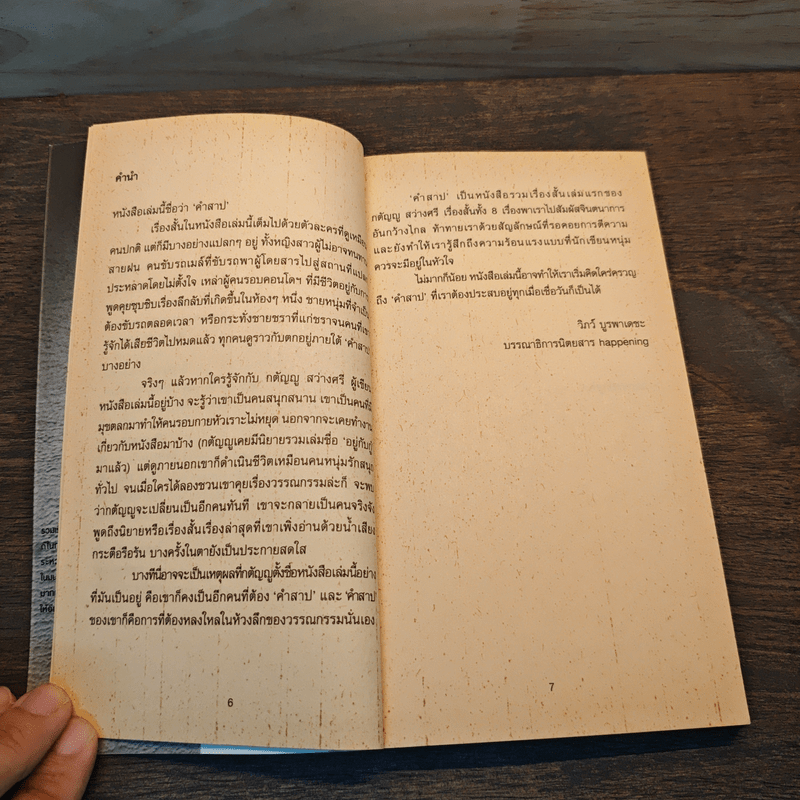 คำนำ
หนังสือเล่มนี้ชื่อว่า ‘คำสาป’
เรื่องสั้นในหนังสือเล่มนี้เต็มไปด้วยตัวละครที่ดูเหมือน
คนปกติ แต่ก็มีบางอย่างแปลกๆ อยู่ ทั้งหญิงสาวผู้ไม่อาจทน
สายฝน คนขับรถเมล์ที่ขับรถพาผู้โดยสารไปสู่สถานที่
ประหลาดโดยไม่ตั้งใจ เหล่าผู้คนรอบคอนโดฯ ที่มีชีวิตอยู่กับ
พูดคุยซุบซิบเรื่องลึกลับที่เกิดขึ้นในห้องๆ หนึ่ง ชายหนุ่มที่
ต้องขับรถตลอดเวลา หรือกระทั่งชายชราที่แก่ชราจนคนที่
รู้จักได้เสียชีวิตไปหมดแล้ว ทุกคนดูราวกับตกอยู่ภายใต้ ‘คำสาป’
บางอย่าง
จริงๆ แล้วหากใครรู้จักกับ กตัญญู สว่างศรี ผู้เขียน
หนังสือเล่มนี้อยู่บ้าง จะรู้ว่าเขาเป็นคนสนุกสนาน เขาเป็นคนที่
มุขตลกมาทำให้คนรอบกายหัวเราะไม่หยุด นอกจากจะเคยทำงาน
เกี่ยวกับหนังสือมาบ้าง (กตัญญูเคยมีนิยายรวมเล่มชื่อ ‘อยู่กับกู
มาแล้ว) แต่ดูภายนอกเขาก็ดำเนินชีวิตเหมือนคนหนุ่มรักสนุก
ทั่วไป จนเมื่อใครได้ลองชวนเขาคุยเรื่องวรรณกรรมล่ะก็ จะพบ
ว่ากตัญญูจะเปลี่ยนเป็นอีกคนทันที เขาจะกลายเป็นคนจริงจัง
พูดถึงนิยายหรือเรื่องสั้นเรื่องล่าสุดที่เขาเพิ่งอ่านด้วยน้ำเสียง
กระตือรือร้น บางครั้งในตายังเป็นประกายสดใส
บางทีนี่อาจจะเป็นเหตุผลที่กตัญญูตั้งชื่อหนังสือเล่มนี้อย่าง
ที่มันเป็นอยู่ คือเขาก็คงเป็นอีกคนที่ต้อง ‘คำสาป’ และ ‘คำสาป’
ของเขาก็คือการที่ต้องหลงใหลในห้วงลึกของวรรณกรรมนั่นเอง
6
‘คำสาป’ เป็นหนังสือรวมเรื่องสั้นเล่มแรกของ
กตัญญู สว่างศรี เรื่องสั้นทั้ง 8 เรื่องพาเราไปสัมผัสจินตนาการ
อันกว้างไกล ท้าทายเราด้วยสัญลักษณ์ที่รอคอยการตีความ
และยังทำให้เรารู้สึกถึงความร้อนแรงแบบที่นักเขียนหนุ่ม
ควรจะมีอยู่ในหัวใจ
ไม่มากก็น้อย หนังสือเล่มนี้อาจทำให้เราเริ่มคิดใคร่ครวญ
ถึง ‘คำสาป’ ที่เราต้องประสบอยู่ทุกเมื่อเชื่อวันก็เป็นได้
วิภว์ บูรพาเดชะ
บรรณาธิการนิตยสาร happening
7